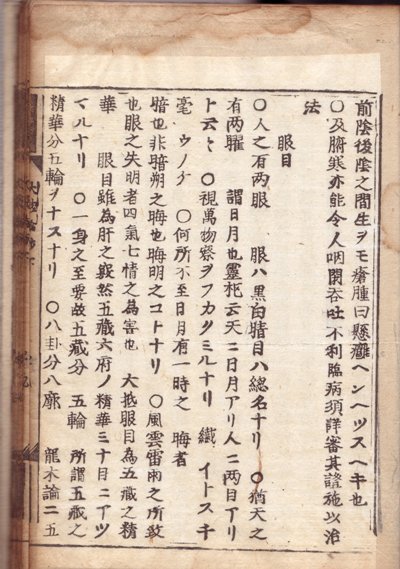 前陰後陰之間生ヲモ瘡腫曰懸癰ヘンヘツスヘキ也
〇及腑寒亦能令人咽閉吞吐不利臨病須詳審其證施以治
法
眼目
〇人之有兩眼 眼ハ黒白睛目ハ總名ナリ 〇猶天之
有兩曜 謂日月也靈枢云天ニ日月アリ人ニ兩目アリ
ト云云 〇視萬物察ヲフカクミルナリ 纎 イトスチ
毫 ウノケ 〇何所不至日月有一時之 晦者
暗也非晦朔之晦也晦明之コトナリ 〇風雲雷雨之所致
也眼之失明者四氣七情之為害也 大抵眼目為五蔵之精
華 眼目雖為肝之竅然五蔵六府ノ精華三十目ニアツ
マルナリ 〇一身之至要故五蔵分 五輪 所謂五蔵之
精華分五輪ヲナスナリ 〇八卦分八廓 龍木論ニ五